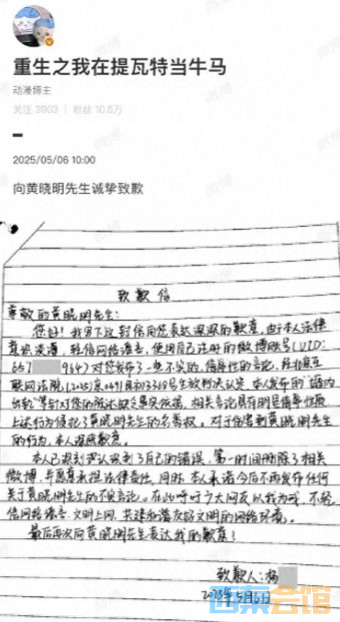 重生之我在提瓦特当牛马
动漫博主
关注 3903 | 粉丝 10.6万
2025/05/06 10:00
向黄晓明先生诚挚致歉
致歉信
尊敬的黄晓明先生:
您好!我写下这封信向您表达深深的歉意。由于本人法律
意识淡薄,轻信网络谣言,使用自己注册的微博账号(UID:
667 964)对您发布了一些不实的、侮辱性的言论,经北京互
联网法院(2025)京0491民初3318号生效判决认定,本人发布的"婚内
出轨"等针对您的陈述缺乏事实依据,相关言论具有明显侮辱性质,
上述行为侵犯了黄晓明先生的名誉权。对于伤害到黄晓明先生
的行为,本人深感歉意。
本人已深刻认识到了自己的错误,第一时间删除了相关
微博,并愿意承担法律责任,同时,本人承诺今后不再发布任何
关于黄晓明先生的不实言论。在此呼吁广大网友以我为戒,不轻
信网络谣言,文明上网,共建和谐友好文明的网络环境。
最后再次向黄晓明先生表达我的歉意!
致歉人:杨
2025年5月6日
西菜会馆